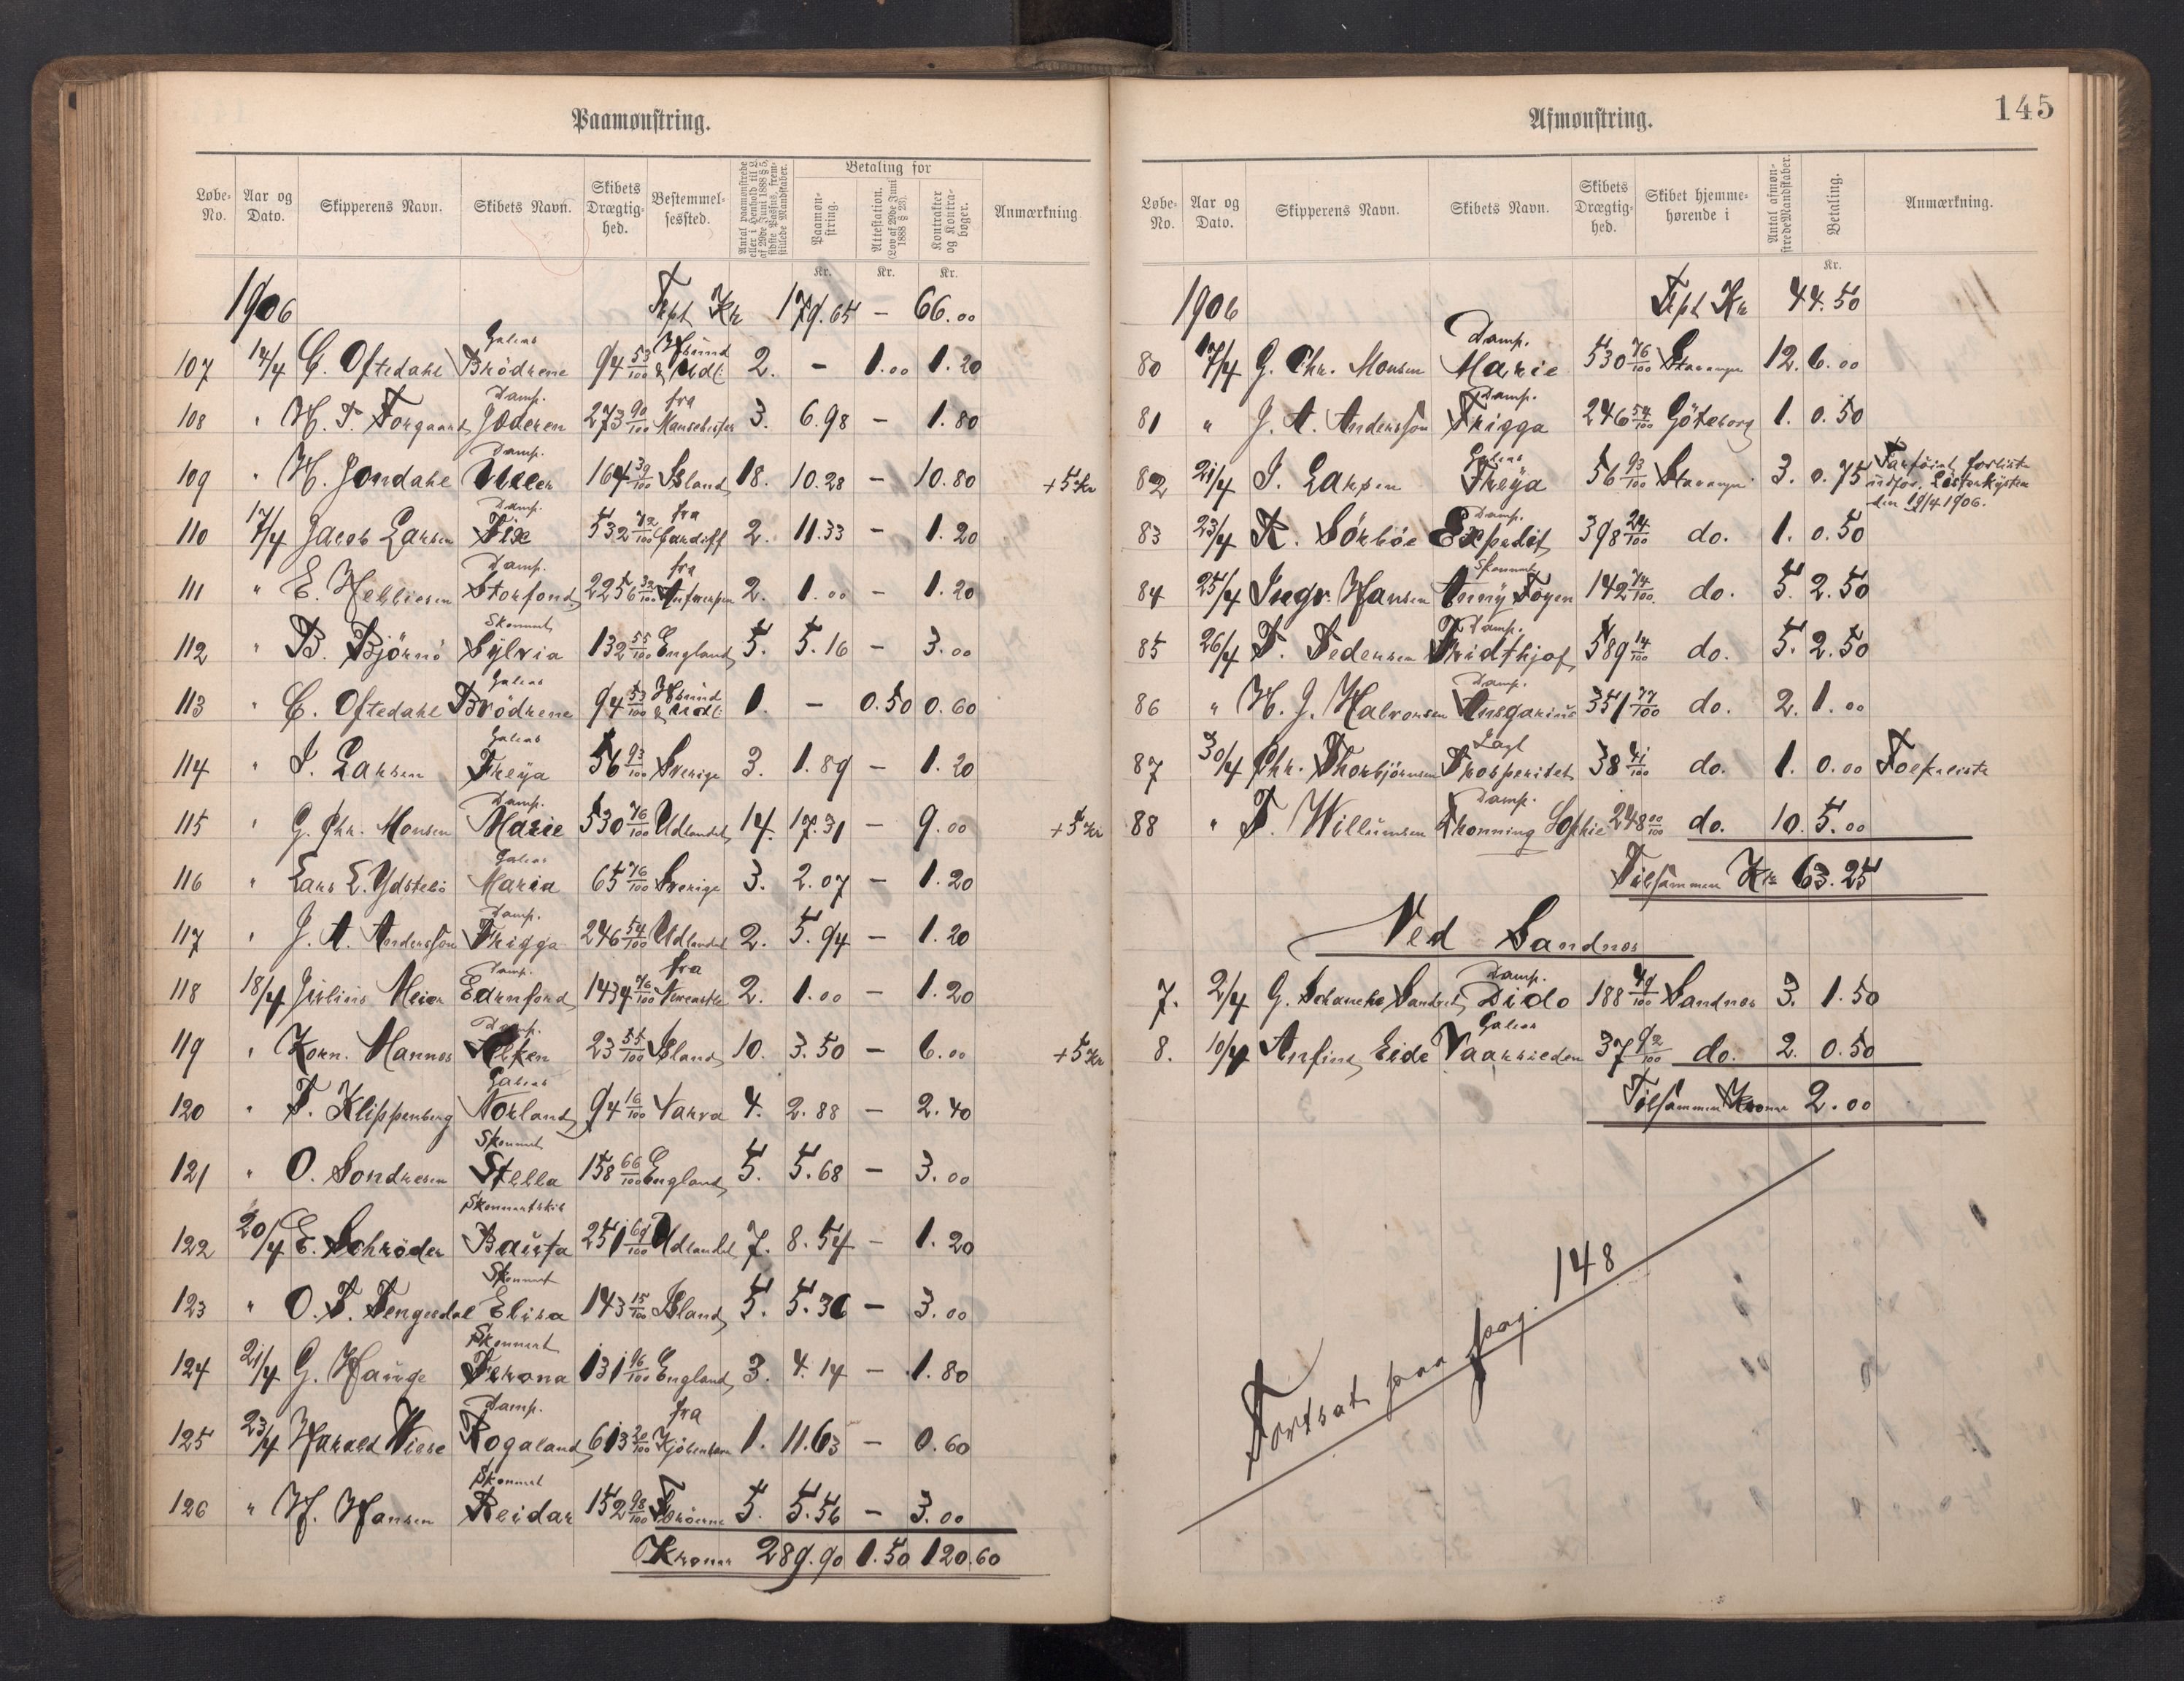 Paamønstring.
Løbe-No. Aar og Dato. Skipperens Navn. Skibets Navn. Skibets Drægtighed. Bestemmelsessted. Antal paamønstrede eller i Henhold til § af 29de Juni 1888 § 5, sidste Passus, fremstillede Mandskaber. Betaling for Paamønstring. Attestation. (Lov af 29de Juni 1888 § 23). Kontrakter og Kontrabøger. Anmærkning
Kr. Kr. Kr.
1906 Tspt Kr 179.65 – 66.00
107 14/4 C. Oftedahl Galeas Brödrene 94 53/100 & Udl: 2. – 1.00 1.20
108 " H. T. Torgaard Damp. Jæderen 273 90/100 fra Manschester 3. 6.98 – 1.80
109 " H. Jondahl Damp. Uller 164 39/100 Island 18. 10.28 – 10.80 +5 Kr
110 17/4 Jacob Larsen Damp. Fix 532 72/100 fra Cardiff 2. 11.33 – 1.20
111 " E. Helliesen Damp. Storfond 2256 32/100 fra Antwerpen 2. 1.00 – 1.20
112 " B. Björnö Skonnert Sylvia 132 55/100 England 5. 5.16 – 3.00
113 " C. Oftedahl Galeas Brödrene 94 53/100 & Udl: 1. – 0.50 0.60
114 " I. Larsen Galeas Freya 56 93/100 Sverige 3. 1.89 – 1.20
115 " G. Chr. Monsen Damp. Marie 530 76/100 Udlandet 14. 17.31 – 9.00 +5 Kr
116 " Lars L. Ydstebö Galeas Maria 65 76/100 Sverige 3. 2.07 – 1.20
117 " J. A. Andersson Damp. Frigga 246 54/100 Udlandet 2. 5.94 – 1.20
118 18/4 Julius Meier Damp. Edenfond 1434 76/100 fra Newcastle 2. 1.00 – 1.20
119 " Korn. Mannes Damp. 23 55/100 Island 10. 3.50 – 6.00 +5 Kr
120 " T. Klippenberg Galeas Norland 94 16/100 Narva 4. 2.88 – 2.40
121 " O. Sondresen Skonnert Stella 158 66/100 England 5. 5.68 – 3.00
122 20/4 E. Schröder Skonnertskib Bauta 251 69/100 Udlandet 7. 8.54 – 1.20
123 " O. T. Tengesdal Skonnert Elisa 143 15/100 Island 5. 5.36 – 3.00
124 21/4 G. Hauge Skonnert Verona 131 96/100 England 3. 4.14 – 1.80
125 23/4 Harald Wiese Damp. Rogaland 613 20/100 fra Kjöbenhavn 1. 11.63 – 0.60
126 " H. Hansen Skonnert Reidar 152 98/100 Færöerne 5. 5.56 – 3.00
Kroner 289.90 1.50 120.60
Afmønstring.
145
Løbe-No. Aar og Dato. Skipperens Navn. Skibets Navn. Skibets Drægtighed. Skibet hjemmehørende i Antal afmønstrede Mandskaber. Betaling. Anmærkning.
Kr.
1906 Tspt Kr 44.50
80 17/4 G. Chr. Monsen Damp. Marie 530 76/100 Stavanger 12. 6.00
81 " J. A. Andersson Damp. Frigga 246 54/100 Göteborg 1. 0.50
82 21/4 I. Larsen Galeas Freya 56 93/100 Stavanger 3. 0.75 Fartöiet forliste indfor Listerkysten den 19/4 1906.
83 23/4 K. Sörböe Damp. Expedit 398 24/100 do. 1. 0.50
84 25/4 Ingv. Hansen Skonnert Anny Foyen 142 74/100 do. 5. 2.50
85 26/4 T. Pedersen Damp. Fridthjof 589 14/100 do. 5. 2.50
86 " H. J. Halvorsen Damp. Ansgarius 351 77/100 do. 2. 1.00
87 30/4 Chr. Thorbjörnsen Jagt Prosperitet 38 41/100 do. 1. 0.00 Folkeliste
88 " T. Willumsen Damp. Dronning Sophie 248 00/100 do. 10. 5.00
Tilsammen Kr 63.25
Ved Sandnes
7. 2/4 G. Schanche Sandved Damp. Dido 188 49/100 Sandnes 3. 1.50
8. 10/4 Anfind Eide Galeas Vaarsilden 37 92/100 do. 2. 0.50
Tilsammen Kroner 2.00
Fortsat paa pag. 148